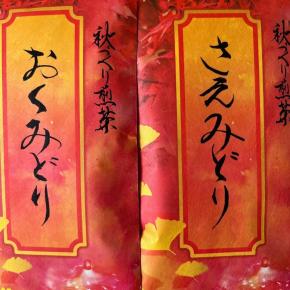 秋つくり煎茶
さえみどり
秋つくり煎茶
おくみどり